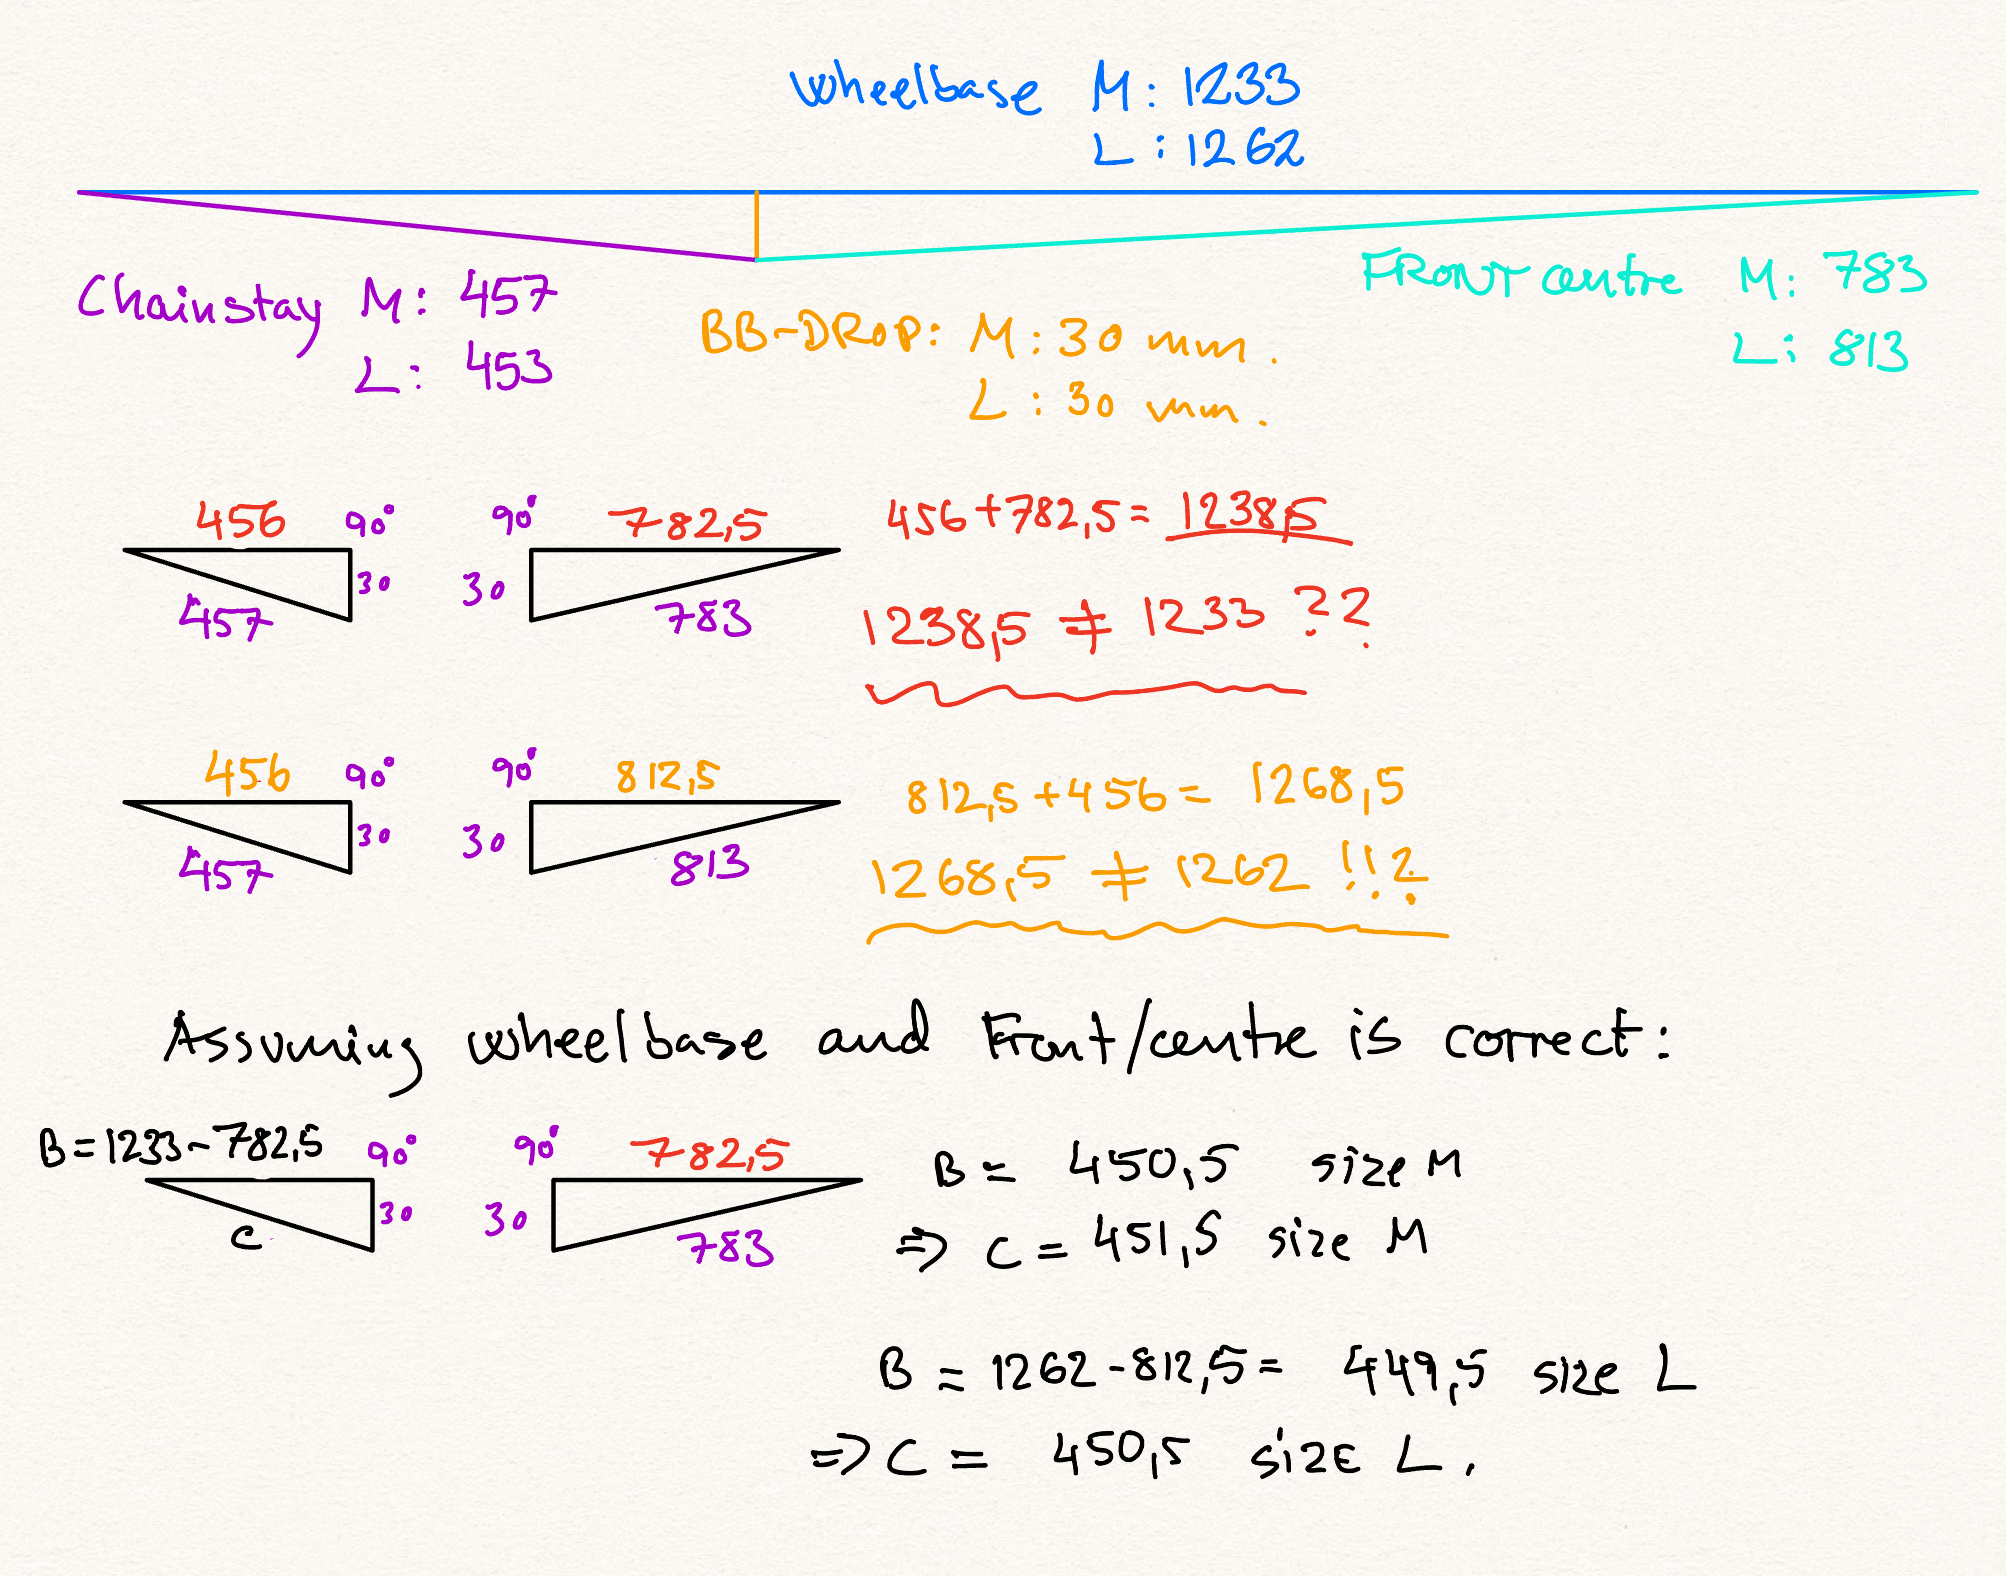 Wheelbase M: 1233
L: 1262
Chainstay M: 457
L: 453
BB-DROP: M: 30 mm.
L: 30 mm.
FRONT centre M: 783
L: 813
456 90° 90° 782,5 456+782,5= 1238,5
30 30
457 783 1238,5 ≠ 1233 ??
456 90° 90° 812,5 812,5+456= 1268,5
30 30
457 813 1268,5 ≠ 1262 !!?
Assuming wheelbase and Front/centre is correct:
B=1233-782,5 90° 90° 782,5 B= 450,5 size M
30 30
C 783 => C = 451,5 size M
B = 1262-812,5= 449,5 size L
=> C = 450,5 size L.